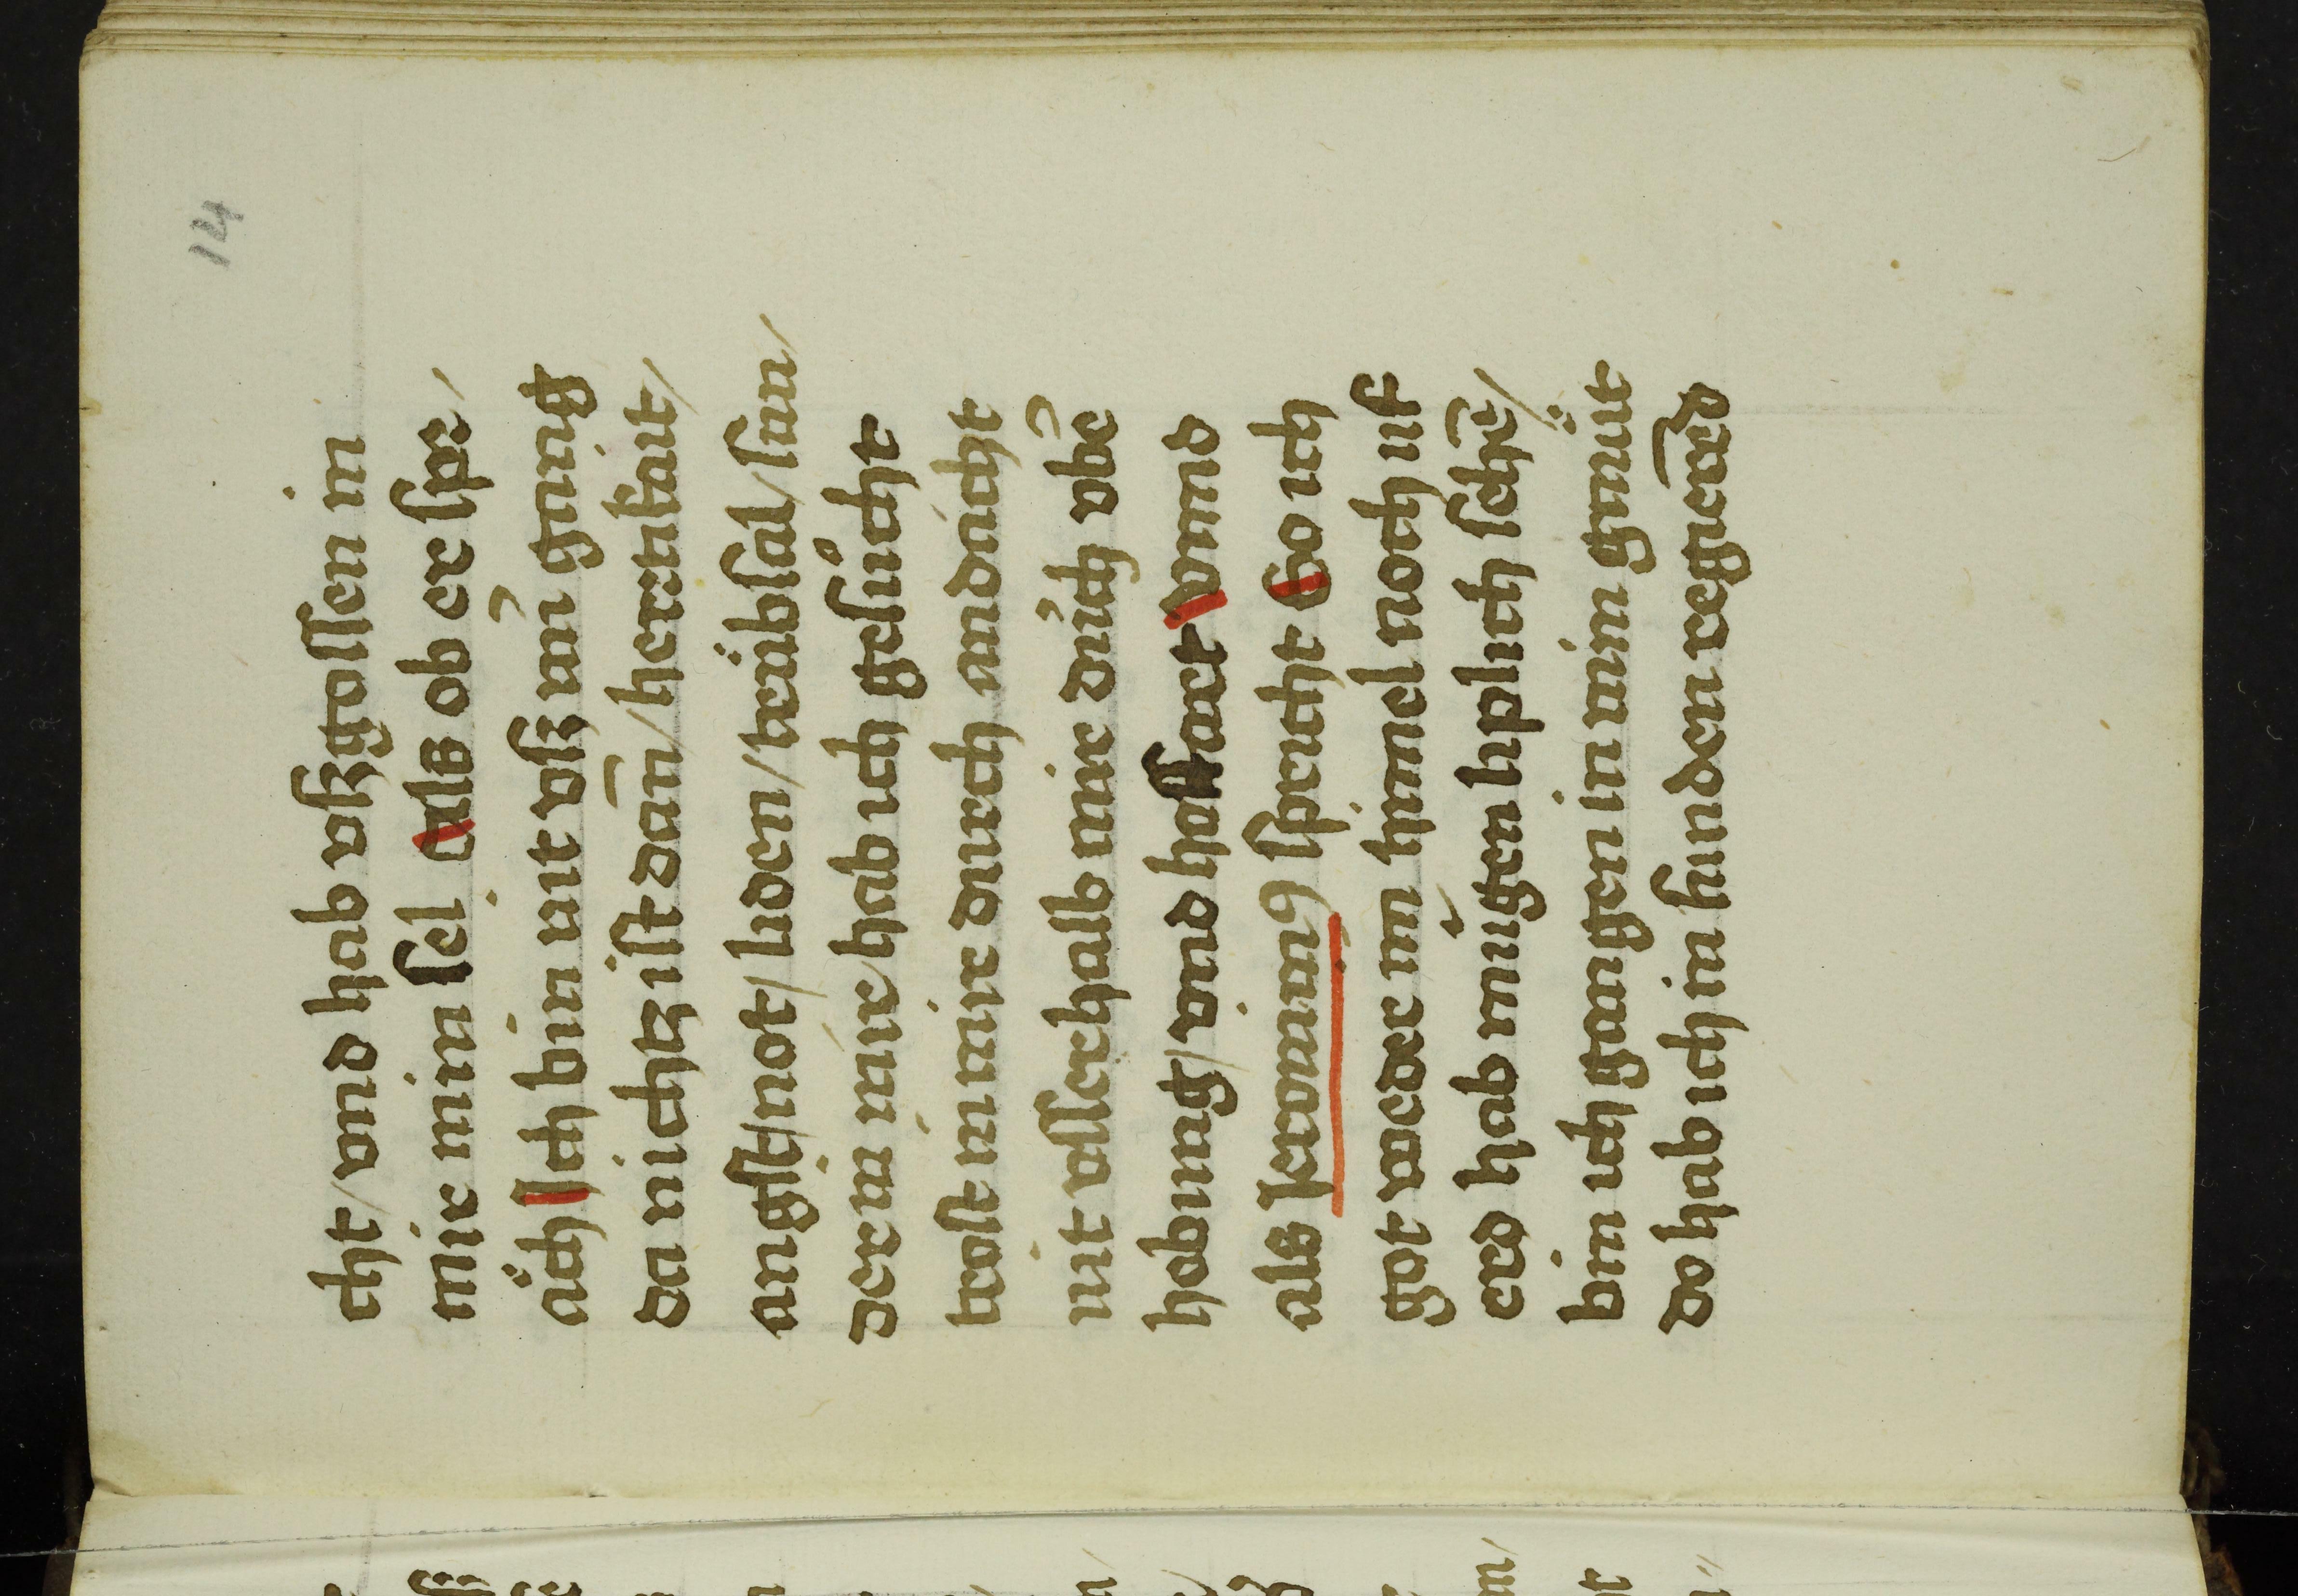 14
cht / vnd hab vſzgoſſen in
mir min ſel Als ob er ſpre /
ͣch Ich bin nit vſz mī gaing
da nichtz iſt dān / hertikait /
angſt / not / liden / trübſal / ſun
dern mir hab ich geſücht
troſt in mir durch andacht
nit vſſerhalb mir durch vbe
hebung / vnd hoffart Vnnd
als Jeronim9 ſpricht So ich
got weder im himel noch uf
erd hab mügen liplich ſehē /
bin ich gangen in min gmüt
do hab ich in funden regierēd